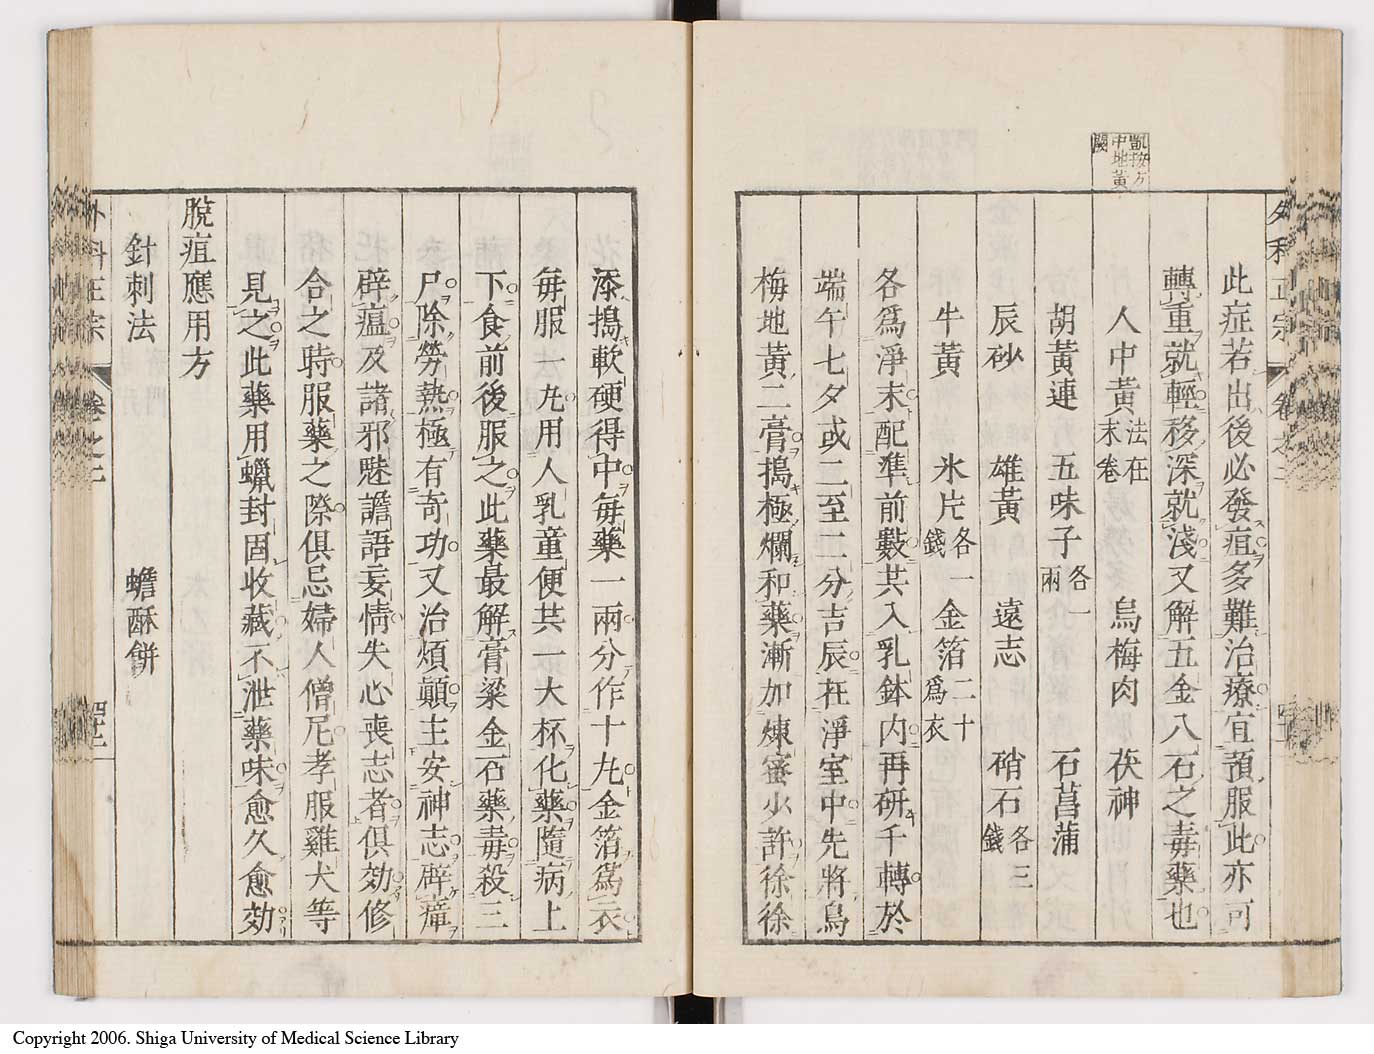 凱按方
中地黃
闕
此症若出後必發疽多難治療宜預服此亦可
轉重就輕移深就淺又解五金八石之毒藥也
人中黃法在末卷　烏梅肉　茯神
胡黃連　五味子各一兩　石菖蒲
辰砂　雄黃　遠志　硝石各三錢
牛黃　氷片各一錢　金箔二十爲衣
各爲淨末配準前數共入乳鉢内再研千轉於
端午七夕或二至二分吉辰在淨室中先將烏
梅地黃二膏搗極爛和藥漸加煉蜜少許徐徐
添搗軟硬得中毎藥一兩分作十九金箔爲衣
毎服一九用人乳童便共一大杯化藥隨病上
下食前後服之此藥最解膏粱金石藥毒殺三
尸除勞熱極有奇功又治煩顚主安神志辟瘴
辟瘟及諸邪魅譫語妄情失心喪志者俱効修
合之時服藥之際俱忌婦人僧尼孝服雞犬等
見之此藥用蠟封固收藏不泄藥味愈久愈効
脫疽應用方
針刺法　蟾酥餅
外科正宗　卷之二